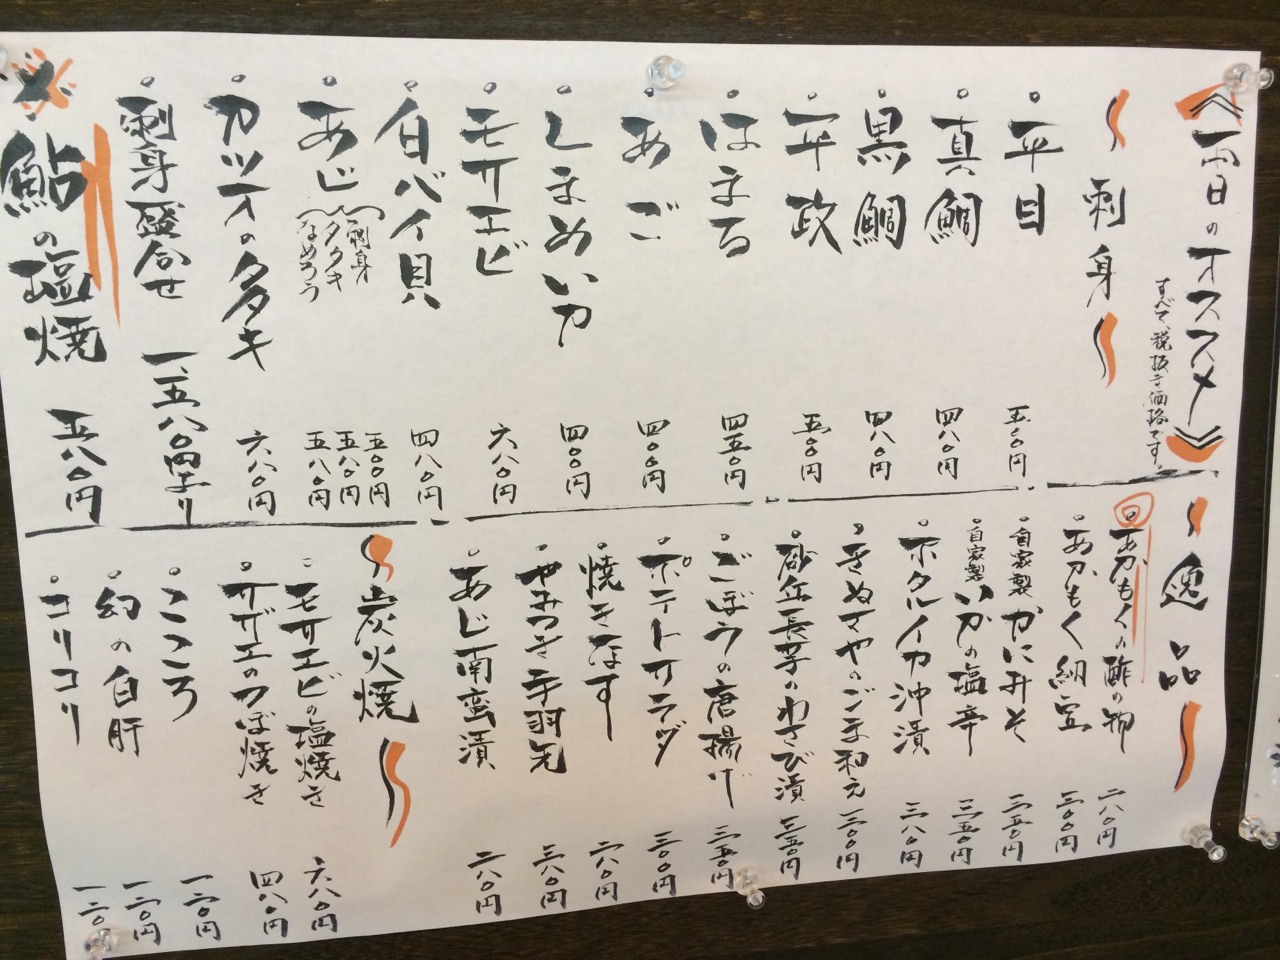 本日のオススメ
すべて、税抜き価格です。
刺身
平目 五〇〇円
真鯛 四八〇円
黒鯛 四八〇円
平政 五〇〇円
はまる 四五〇円
あご 四〇〇円
しまめいか 四〇〇円
モサエビ 六八〇円
白バイ貝 四八〇円
あじ
刺身 五〇〇円
タタキ 五八〇円
なめろう 五八〇円
カツオのタタキ 六八〇円
刺身盛合せ 一、五八〇円より
鮎の塩焼 五八〇円
逸品
あかもくの酢の物 二八〇円
あかもく納豆 三〇〇円
自家製かにみそ 三五〇円
自家製いかの塩辛 三五〇円
ホタルイカ沖漬 三八〇円
きぬさやのごま和え 三〇〇円
砂丘長芋のわさび漬 三五〇円
ごぼうの唐揚げ 三五〇円
ポテトサラダ 三〇〇円
焼きなす 二八〇円
やみつき手羽先 三八〇円
あじ南蛮漬 二八〇円
炭火焼
モサエビの塩焼き 六八〇円
サザエのつぼ焼き 四八〇円
こころ 一二〇円
幻の白肝 一二〇円
コリコリ